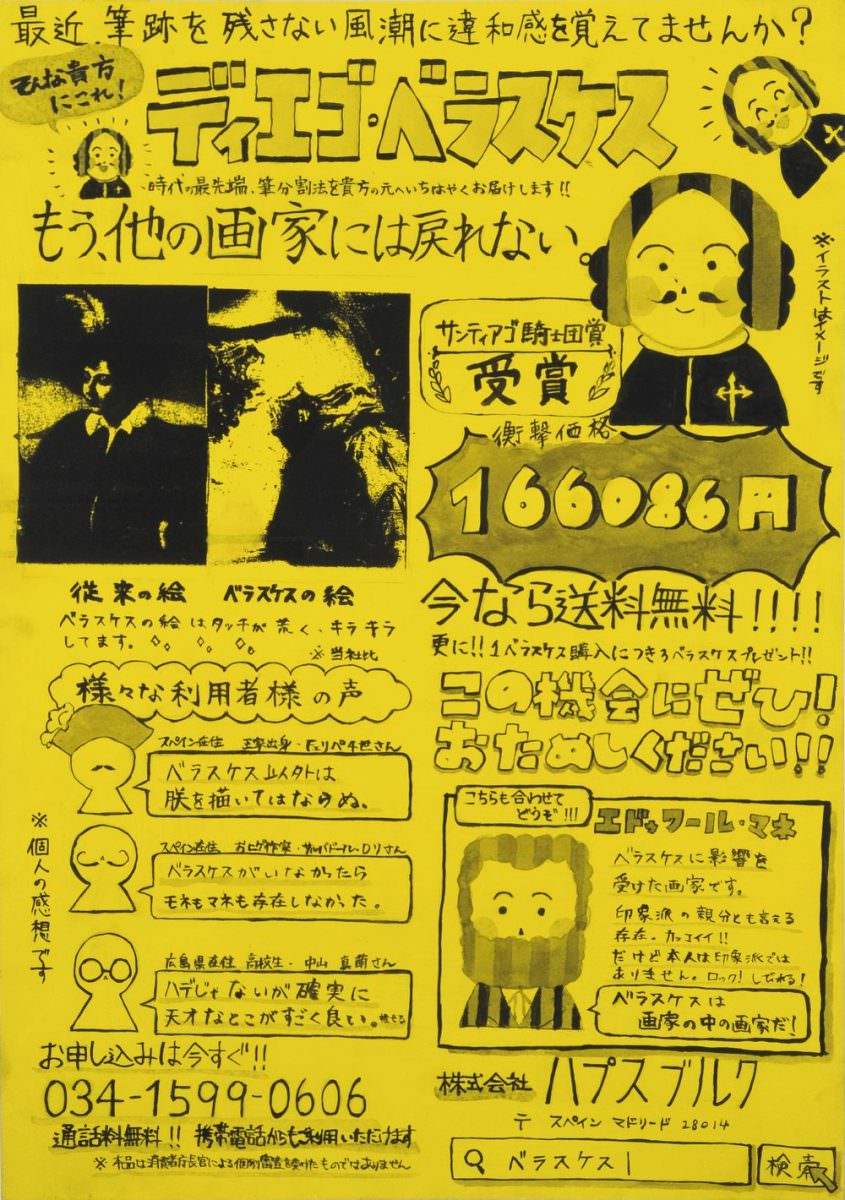 最近、筆跡を残さない風潮に違和感を覚えてませんか？
そんな貴方
にこれ！
ディエゴ・ベラスケス
時代の最先端、筆分割法を貴方の元へいちはやくお届けします!!
もう、他の画家には戻れない。
※イラストはイメージです
サンティアゴ騎士団賞
受賞
衝撃価格
166086円
従来の絵 ベラスケスの絵
ベラスケスの絵はタッチが荒く、キラキラ
してます。
※当社比
今なら送料無料!!!!
更に!!1ベラスケス購入につき3ベラスケスプレゼント!!
この機会にぜひ!
おためしください!!
様々な利用者様の声
スペイン在住 王家出身・フェリペ4世さん
ベラスケス以外は
朕を描いてはならぬ、
スペイン在住 おヒゲ作家・サルバドール・ダリさん
ベラスケスがいなかったら
モネもマネも存在しなかった。
広島県在住 高校生・中山 真萌さん
ハデじゃないが確実に
天才なとこがすごく良い。
※個人の感想です
こちらも合わせて
どうぞ!!!
エドゥワール・マネ
ベラスケスに影響を
受けた画家です。
印象派の親分とも言える
存在。カッコイイ!!
だけど本人は印象派では
ありません。ロック!しびれる!
ベラスケスは
画家の中の画家だ!
お申し込みは今すぐ!!
034-1599-0606
通話料無料!! 携帯電話からもご利用いただけます
※本品は消費者庁長官による個別審査を受けたものではありません
株式会社 ハプスブルク
〒 スペイン マドリード 28014
ベラスケス|
検索